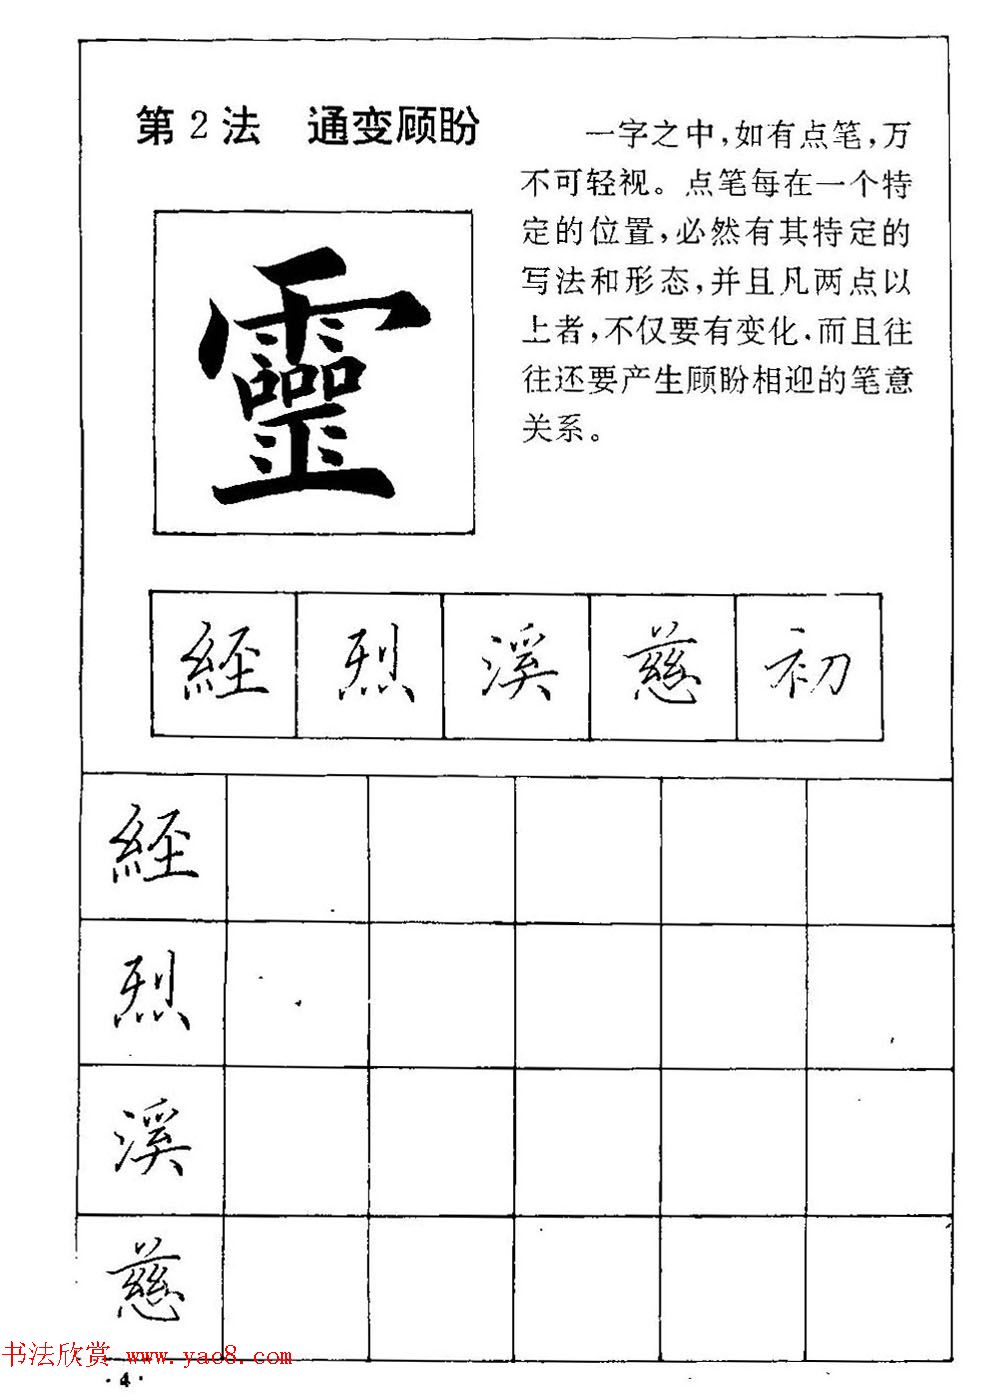 第2法 通变顾盼
一字之中,如有点笔,万
不可轻视。点笔每在一个特
定的位置,必然有其特定的
写法和形态,并且凡两点以
上者,不仅要有变化.而且往
往还要产生顾盼相迎的笔意
关系。
靈
経 烈 溪 慈 初
経
烈
溪
慈
书法欣赏 www.yac8.com
·4·